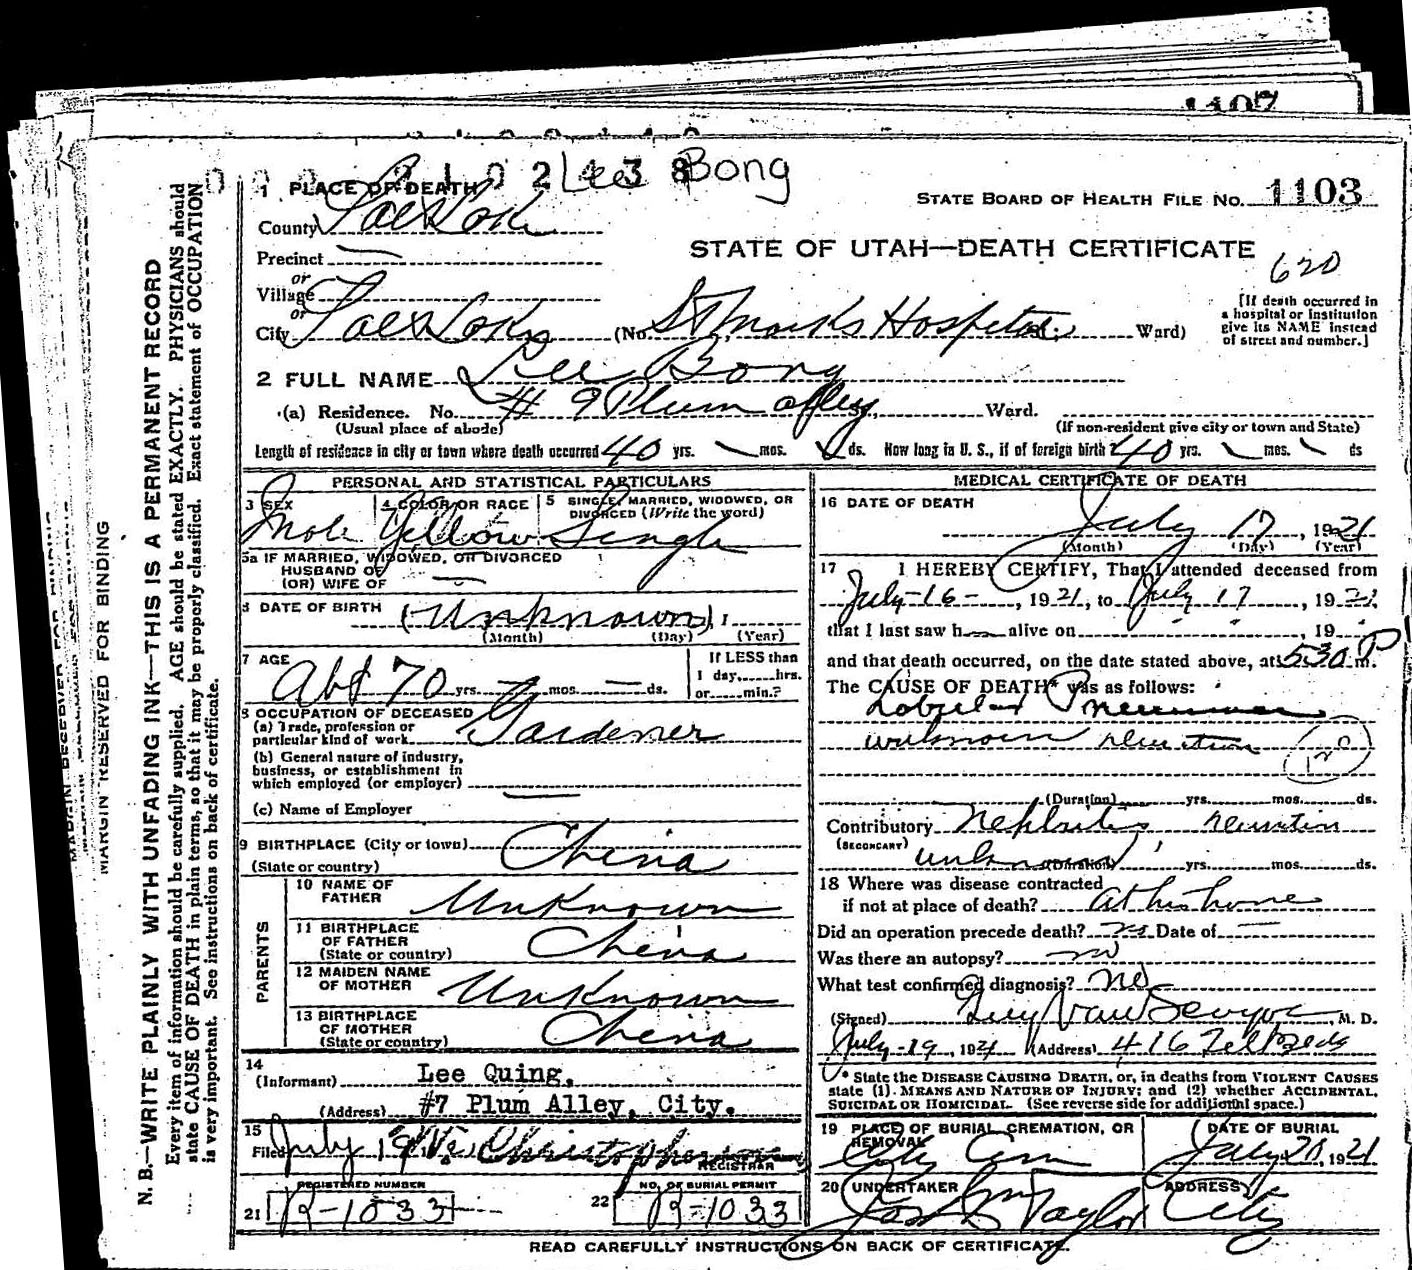 1107
2 4 3 8 Lee Bong
1 PLACE OF DEATH
STATE BOARD OF HEALTH FILE No. 1103
County Salt Lake
STATE OF UTAH—DEATH CERTIFICATE
Precinct —
620
or
Village
or
City Salt Lake (No. St Marks Hospital, Ward)
[If death occurred in
a hospital or institution
give its NAME instead
of street and number.]
2 FULL NAME Lee Bong
(a) Residence. No. # 9 Plum alley St., Ward.
(Usual place of abode) (If non-resident give city or town and State)
Length of residence in city or town where death occurred 40 yrs. mos. ds. How long in U. S., if of foreign birth 40 yrs. mos. ds
PERSONAL AND STATISTICAL PARTICULARS
3 SEX 4 COLOR OR RACE 5 SINGLE, MARRIED, WIDOWED, OR
DIVORCED (Write the word)
Male Yellow Single
5a IF MARRIED, WIDOWED, OR DIVORCED
HUSBAND OF
(OR) WIFE OF —
6 DATE OF BIRTH (Unknown), 1
(Month) (Day) (Year)
7 AGE
Abt 70 yrs. — mos. — ds.
If LESS than
1 day, hrs.
or min.?
8 OCCUPATION OF DECEASED
(a) Trade, profession or
particular kind of work Gardener
(b) General nature of industry,
business, or establishment in
which employed (or employer) —
(c) Name of Employer
9 BIRTHPLACE (City or town) China
(State or country)
PARENTS
10 NAME OF
FATHER Unknown
11 BIRTHPLACE
OF FATHER
(State or country) China
12 MAIDEN NAME
OF MOTHER Unknown
13 BIRTHPLACE
OF MOTHER
(State or country) China
14
(Informant) Lee Quing.
(Address) #7 Plum Alley, City.
15
Filed July 19 Christopherson
REGISTRAR
REGISTERED NUMBER
21 R-1033
NO. OF BURIAL PERMIT
22 R-1033
MEDICAL CERTIFICATE OF DEATH
16 DATE OF DEATH
July 17, 1921
(Month) (Day) (Year)
17 I HEREBY CERTIFY, That I attended deceased from
July-16-, 1921, to July 17, 1921
that I last saw h alive on " ", 19 "
and that death occurred, on the date stated above, at 530 P m.
The CAUSE OF DEATH* was as follows:
Lobular Pneumonia
unknown duration
(Duration) yrs. mos. ds.
Contributory Nephritis duration
(SECONDARY) unknown (Duration) yrs. mos. ds.
18 Where was disease contracted
if not at place of death? at his home
Did an operation precede death? no Date of —
Was there an autopsy? no
What test confirmed diagnosis? no
(Signed) M. D.
July-19, 1921 (Address) 416
* State the DISEASE CAUSING DEATH, or, in deaths from VIOLENT CAUSES
state (1). MEANS AND NATURE OF INJURY; and (2) whether ACCIDENTAL,
SUICIDAL OR HOMICIDAL. (See reverse side for additional space.)
19 PLACE OF BURIAL, CREMATION, OR
REMOVAL
City Cem
DATE OF BURIAL
July 20, 1921
20 UNDERTAKER
Jos Wm Taylor
ADDRESS
City
READ CAREFULLY INSTRUCTIONS ON BACK OF CERTIFICATE.
MARGIN RESERVED FOR BINDING
N. B.—WRITE PLAINLY WITH UNFADING INK—THIS IS A PERMANENT RECORD
Every item of information should be carefully supplied. AGE should be stated EXACTLY. PHYSICIANS should
state CAUSE OF DEATH in plain terms, so that it may be properly classified. Exact statement of OCCUPATION
is very important. See instructions on back of certificate.